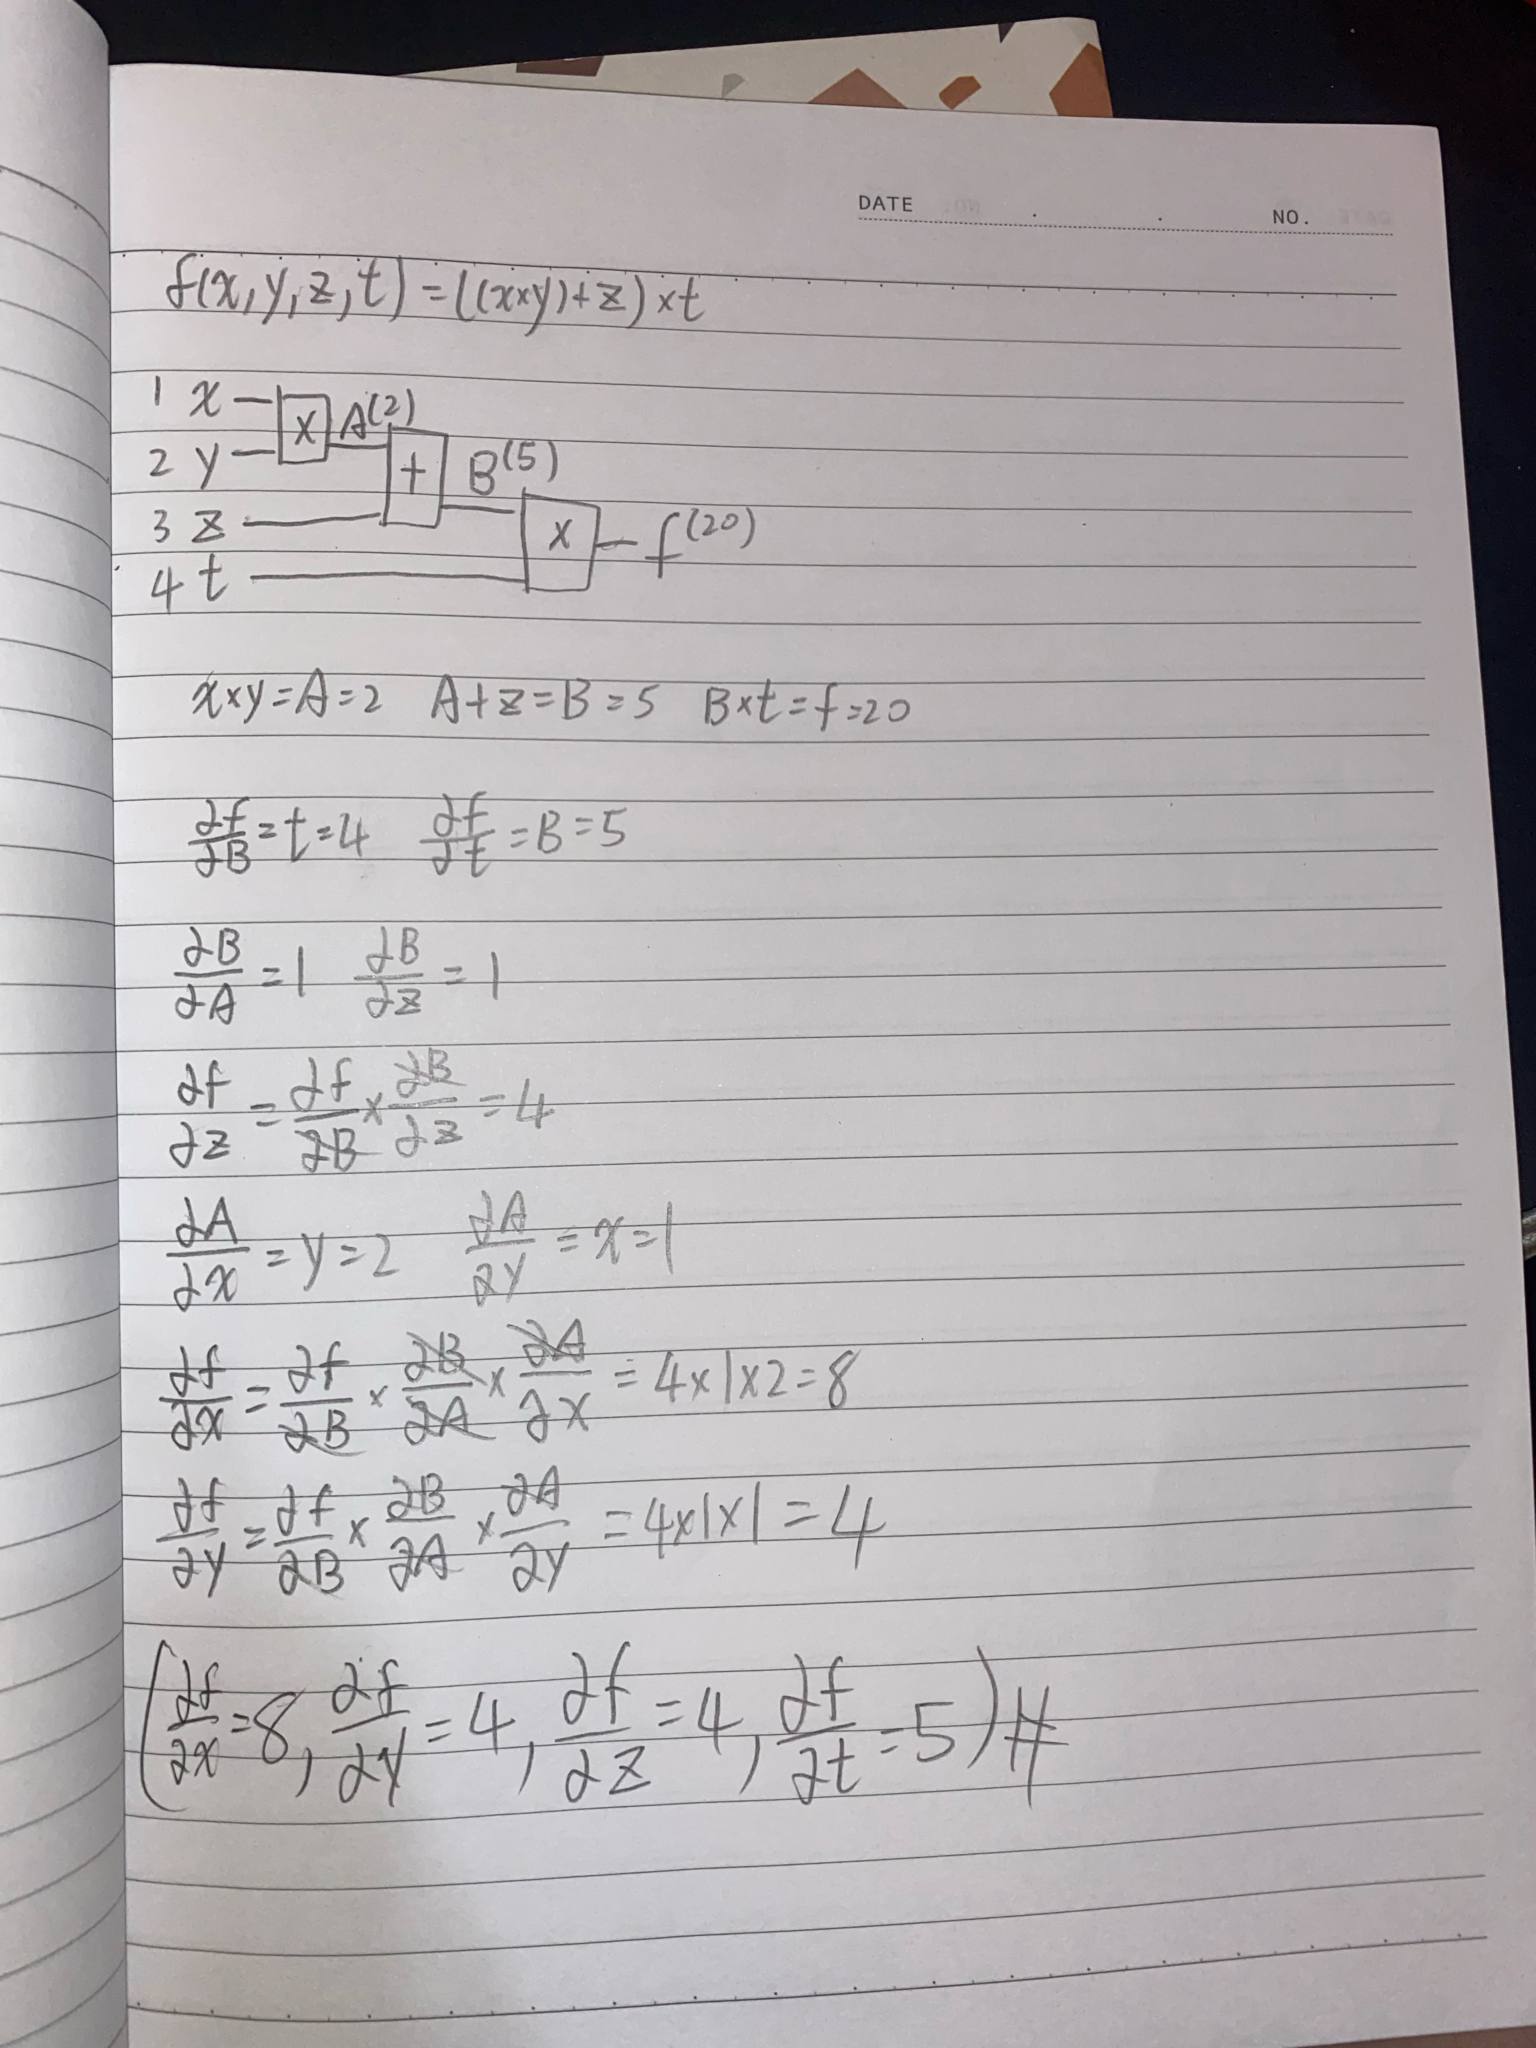 DATE . . NO.
f(x,y,z,t)=((x×y)+z)×t
1 x × A(2)
2 y + B(5)
3 z × f(20)
4 t
x×y=A=2 A+z=B=5 B×t=f=20
∂f/∂B=t=4 ∂f/∂t=B=5
∂B/∂A=1 ∂B/∂z=1
∂f/∂z=∂f/∂B×∂B/∂z=4
∂A/∂x=y=2 ∂A/∂y=x=1
∂f/∂x=∂f/∂B×∂B/∂A×∂A/∂x=4×1×2=8
∂f/∂y=∂f/∂B×∂B/∂A×∂A/∂y=4×1×1=4
(∂f/∂x=8, ∂f/∂y=4, ∂f/∂z=4, ∂f/∂t=5)#